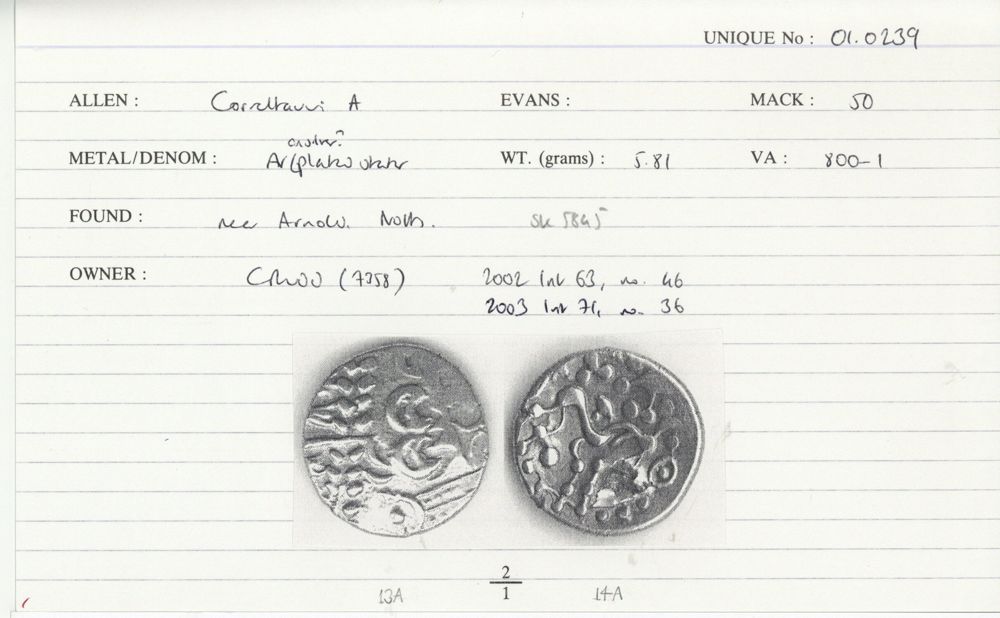 UNIQUE No : 01.0239
ALLEN : Corieltauvi A EVANS : MACK : 50
METAL/DENOM : Ar(plated stater WT. (grams) : 5.81 VA : 800-1
FOUND : near Arnold. Notts. SK 5845
OWNER : (7358) 2002 63, no. 46
2003 71, no. 36
2
1
13A 14A